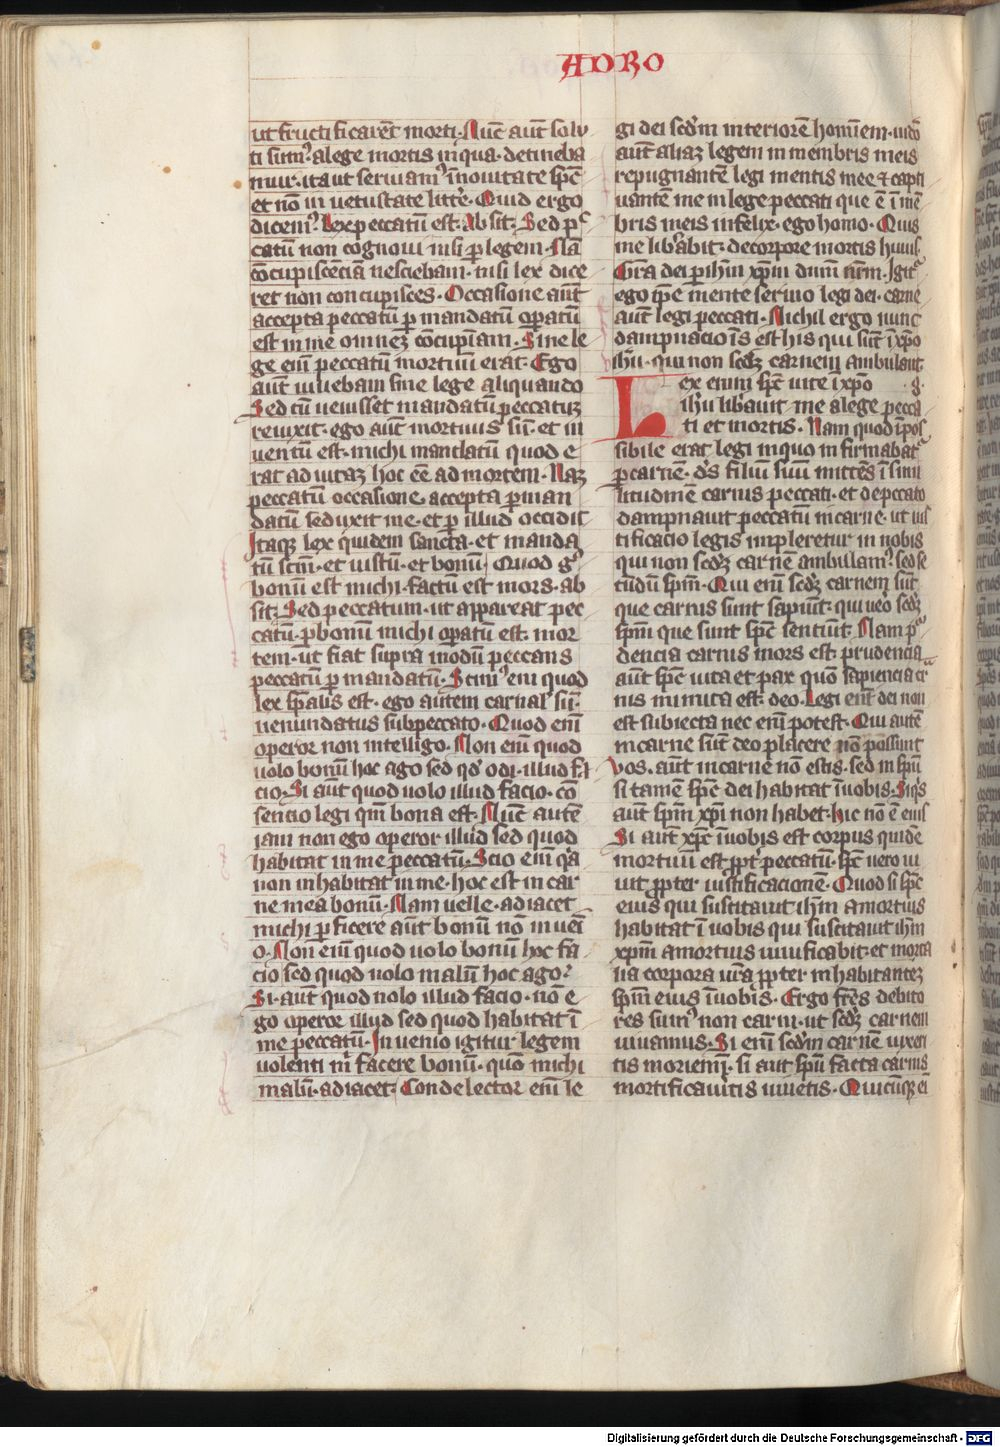 AD RO
ut fructificarēt morti. Nūc aūt solu
ti sumꝰ a lege mortis in qua detineba
mur. ita ut seruiamꝰ ī nouitate spc̄
et nō in uetustate litt̄e. Quid ergo
dicemꝰ. lex peccatū est. Absit. Sed pec
catū non cognoui nisi ꝑ legem. Nā
cōcupiscēciā nesciebam. nisi lex dice
ret non concupisces. Occasione aūt
accepta peccatū ꝑ mandatū oꝑatū
est in me omneꝫ cōcupīam. Sine le
ge eni᷒ peccatū mortuū erat. Ego
aūt uiuebam sine lege aliquando
Sed cū uenisset mandatū peccatuꝫ
reuixit. ego aūt mortuus sū. et in
uentū est michi mandatū quod e
rat ad uitaꝫ hoc eē ad mortem. Naꝫ
peccatū occasione accepta ꝑ man
datū seduxit me. et ꝑ illud occidit
Itaqꝫ lex quidem sancta. et manda
tū scm̄. et iustū. et bonū. Quod gͦ
bonū est michi. factū est mors. ab
sit. Sed peccatum. ut appareat pec
catū. ꝑ bonū michi oꝑatū est mor
tem. ut fiat supra modū peccans
peccatū ꝑ mandatū. Scimꝰ eni quod
lex sp̄alis est. ego autem carnal' sū.
uenundatus sub peccato. Quod enī
operor non intelligo. Non enī quod
uolo bonū hoc ago sed qd̓ odi. illud fa
cio. Si aūt quod nolo illud facio. cō
sencio legi qm̄ bona est. Nūc autē
iam non ego operor illud sed quod
habitat in me peccatū. Scio eni qā
non inhabitat in me. hoc est in car
ne mea bonū. Nam uelle. adiacet
michi ꝑficere aūt bonū nō inuēi
o. Non enī quod uolo bonū hoc fa
cio sed quod nolo malū hoc ago.
Si. aūt quod nolo illud facio. nō e
go operor illud sed quod habitat ī
me peccatū. Inuenio igitur legem
uolenti m̄ facere bonū. quō michi
malū. adiacet. Condelector enī le
gi dei scd̄m interiorē hominem. uideo
aūt aliaꝫ legem in membris meis
repugnantē legi mentis mee ⁊ capti
uantē me in lege peccati que ē ī mē
bris meis infelix. ego homo. Quis
me lib̓abit. de corpore mortis huius.
Gr̄a dei ꝑ ih̄m xp̄m dnm̄ nr̄m. Igitꝰ
ego ip̄e mente seruio legi dei. carne
aūt legi peccati. Nichil ergo nunc
dampnacionis est his qui sūt ī xp̄o
ih̄u. qui non scdꝫ carnem ambulant
Lex enim spc̄ uite ī xp̄o
ih̄u lib̓auit me a lege pecca
ti et mortis. Nam quod īpos
sibile erat legi in quo infirmabatꝰ
ꝑ carnē. ds̄ filiū suū mittēs ī simi
litudinē carnis peccati. et de pccato
dampnauit peccatū in carne. ut ius
tificacio legis impleretur in nobis
qui non scdꝫ carnem ambulamꝰ. sed se
cūdū spm̄. Qui enī scdꝫ carnem sūt
que carnis sunt sapiūt. qui uēo scdꝫ
spm̄ que sunt spc̄ sentiūt. Nam pꝰ
dencia carnis mors est. prudencia
aūt spc̄ uita et pax quō sapiencia car
nis inimica est deo. Legi enī dei non
est subiecta nec enī potest. Qui autē
in carne sūt deo placere nō possunt
Vos. aūt in carne nō estis. sed in spū
si tamē spc̄ dei habitat ī uobis. Siqͥs
aūt spm̄ xp̄i non habet. hic nō ē eius
Si aūt xp̄c ī uobis est corpus quidē
mortuū est ꝓpt̄ peccatū. spc̄ uero ui
uit ꝓpter iustificacionē. Quod si spc̄
eius qui suscitauit ih̄m a mortuis
habitat ī uobis qui suscitauit ih̄m
xp̄m a mortuis uiuificabit. et morta
lia corpora ur̄a ꝓpter inhabitanteꝫ
spm̄ eius ī uobis. Ergo fr̄es debito
res sumꝰ non carni. ut scdꝫ carnem
uiuamus. Si enī scd̄m carnē uixeri
tis moriemī. si aūt spū facta carnis
mortificaueritis uiuetis. Quicūqꝫ eī
Digitalisierung gefördert durch die Deutsche Forschungsgemeinschaft - DFG